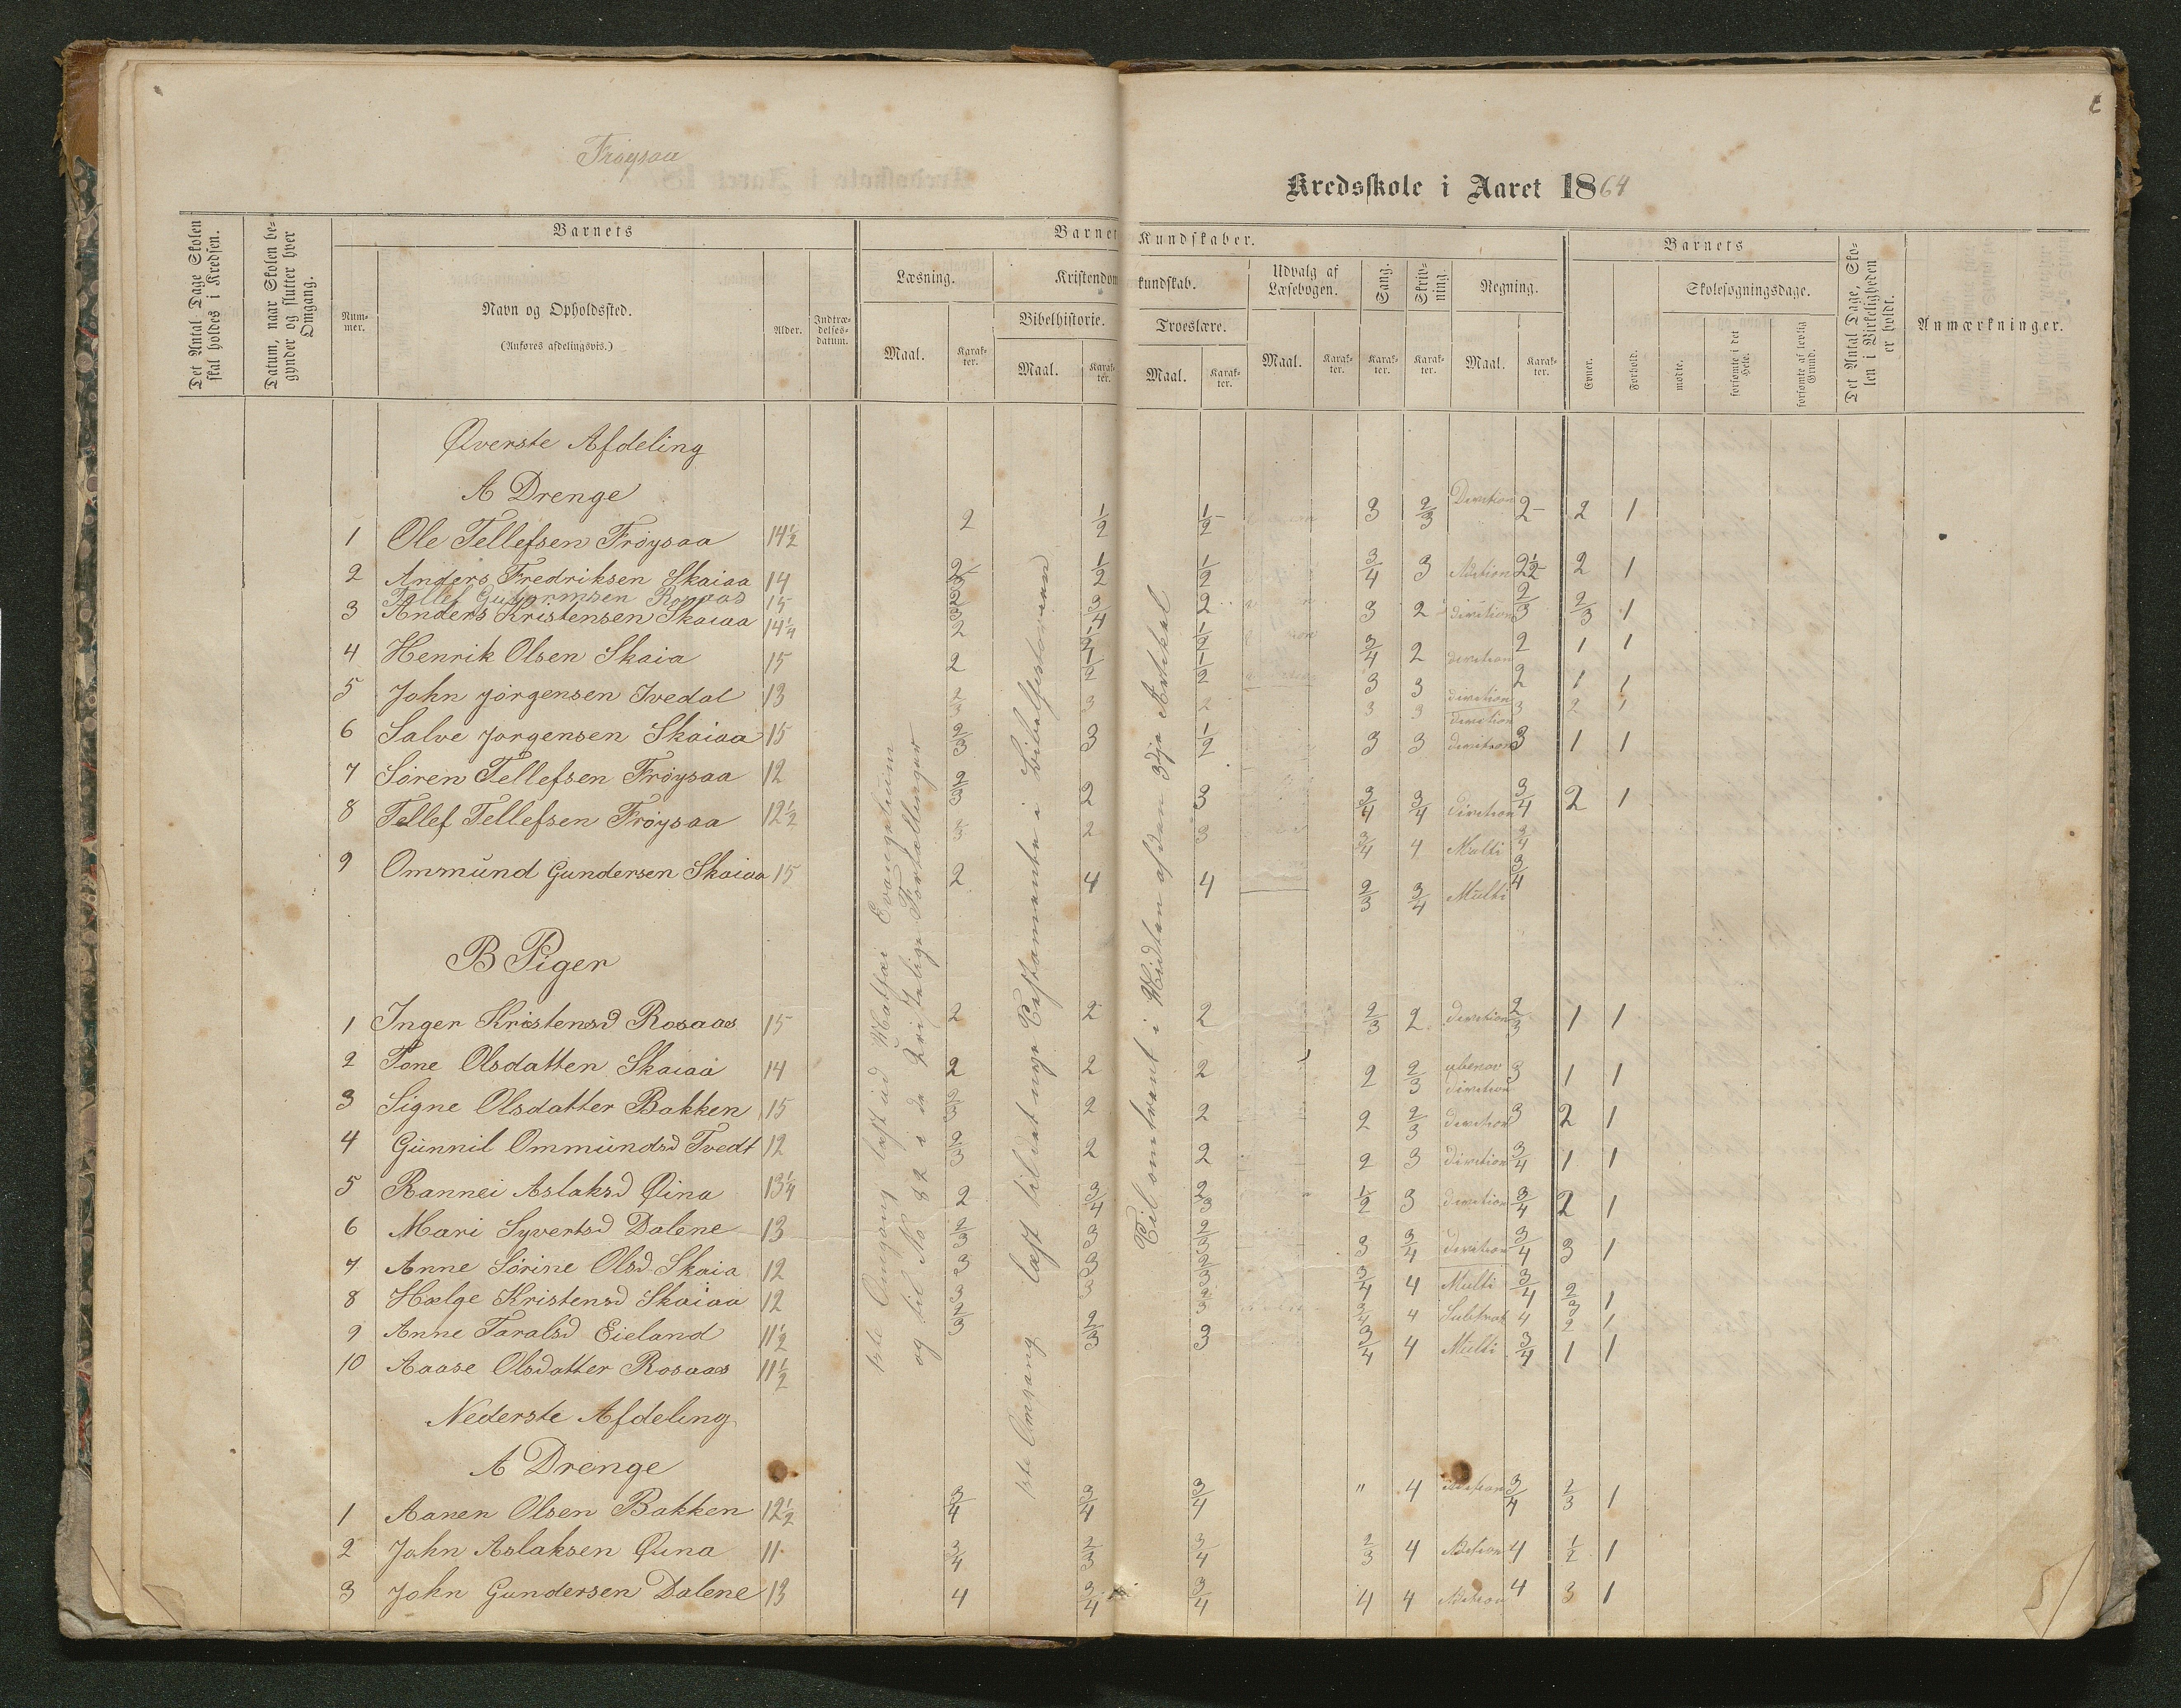 Frøysaa
Kredsskole i Aaret 1864
Det Antal Dage Skolen skal holdes i Kredsen.
Datum, naar Skolen begynder og slutter hver Omgang.
Barnets
Nummer.
Navn og Opholdssted.
(Anføres afdelingsvis.)
Alder.
Indtrædelsesdatum.
Barnets Kundskaber.
Læsning.
Maal.
Karakter.
Kristendomskundskab.
Bibelhistorie.
Maal.
Karakter.
Troeslære.
Maal.
Karakter.
Udvalg af Læsebogen.
Maal.
Karakter.
Sang.
Karakter.
Skrivning.
Karakter.
Regning.
Maal.
Karakter.
Barnets
Evner.
Forhold.
Skolesøgningsdage.
mødte.
forsømte i det Hele.
forsømte af lovlig Grund.
Det Antal Dage, Skolen i Virkeligheden er holdt.
Anmærkninger.
Øverste Afdeling
A Drenge
1 Ole Tellefsen Frøysaa 14½ 2 1/2 1/2 3 2/3 Division 2 2 1
2 Anders Fredriksen Skaiaa 14 2/3 1/2 1/2 3/4 3 Adition 2½ 2 1
Tellef Guttormsen Rosaas 15 2/3 3/4 2 3 2 division 2/3 2/3 1
3 Anders Kristensen Skaiaa 14¼ 2 1/2 1/2 3/4 2 division 2 1 1
4 Henrik Olsen Skaia 15 2 1/2 1/2 3 3 division 2 1 1
5 John Jörgensen Ivedal 13 2/3 3 2 3 3 division 3 2 1
6 Salve Jorgensen Skaiaa 15 2/3 3 1/2 3 3 division 3 1 1
7 Sören Tellefsen Frøysaa 12 2/3 2 3 3/4 3/4 Division 3/4 2 1
8 Tellef Tellefsen Frøysaa 12½ 2/3 2 3 3/4 4 Multi 3/4
9 Ommund Gundersen Skaiaa 15 2 4 4 2/3 3/4 Multi 3/4
B Piger
1 Inger Kristensd Rosaas 15 2 2 2 2/3 2 division 2/3 1 1
2 Tone Olsdatten Skaiaa 14 2 2 2 2 2/3 division 3 1 1
3 Signe Olsdatter Bakken 15 2/3 2 2 2 2/3 division 3 2 1
4 Gunnil Ommundsd Tvedt 12 2/3 2 2 2 3 division 3/4 1 1
5 Rannei Aslaksd Øina 13¼ 2 3/4 2/3 1/2 3 division 3/4 2 1
6 Mari Syvertsd Dalene 13 2/3 3 2/3 3 3/4 Division 3/4 3 1
7 Anne Sörine Olsd Skaia 12 3 3 2/3 3/4 4 Multi 3/4 2/3 1
8 Hælge Kristensd Skaiaa 12 3 3 2/3 3/4 4 Subtrat 4 2 1
9 Anne Taralsd Eieland 11½ 2/3 2/3 3 3/4 4 Multi 3/4 1 1
10 Aaase Olsdatter Rosaas 11½
Nederste Afdeling
A Drenge
1 Aanen Olsen Bakken 12½ 3/4 3/4 3/4 " 4 Adition 3/4 2/3 1
2 John Aslaksen Øina 11 3/4 2/3 3/4 2/3 4 Adition 4 1/2 1
3 John Gundersen Dalene 13 4 3/4 3/4 4 4 Adition 4 3 1
1ste Omgang læst ud Matthæi Evangelium
og til No 82 i de Kristelige Fortællinger
1ste Omgang læst til det nye Testamente i Bibelhistorien
Til omtrent i Midten af den 3dje Artikel